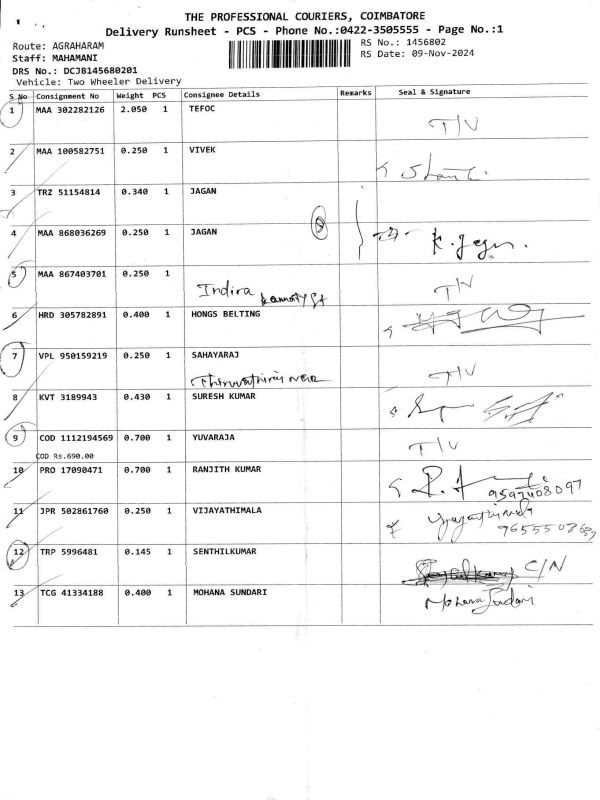 THE PROFESSIONAL COURIERS, COIMBATORE
Delivery Runsheet - PCS - Phone No.:0422-3505555 - Page No.:1
Route: AGRAHARAM
RS No.: 1456802
Staff: MAHAMANI
RS Date: 09-Nov-2024
DRS No.: DCJB145680201
Vehicle: Two Wheeler Delivery
S No Consignment No Weight PCS Consignee Details Remarks Seal & Signature
1 MAA 302282126 2.050 1 TEFOC
T/V
2 MAA 100582751 0.250 1 VIVEK
3 TRZ 51154814 0.340 1 JAGAN
4 MAA 868036269 0.250 1 JAGAN
K. Jegan.
5 MAA 867403701 0.250 1
Indira
T/V
6 HRD 305782891 0.400 1 HONGS BELTING
7 VPL 950159219 0.250 1 SAHAYARAJ
T/V
8 KVT 3189943 0.430 1 SURESH KUMAR
9 COD 1112194569 0.700 1 YUVARAJA
T/V
COD Rs.690.00
10 PRO 17090471 0.700 1 RANJITH KUMAR
9597408097
11 JPR 502861760 0.250 1 VIJAYATHIMALA
12 TRP 5996481 0.145 1 SENTHILKUMAR
C/N
13 TCG 41334188 0.400 1 MOHANA SUNDARI
Mohana Sundari